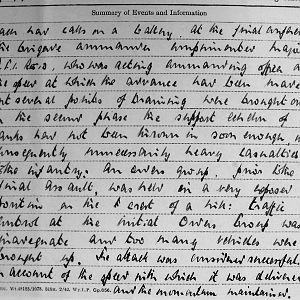 Summary of Events and Information
each had calls on a battery. At the final conference
the brigade commander complimented Major
who was acting commanding officer on
the speed at which the advance had been made
but several points of training were brought out
in the second phase the support echelon of
tanks had not been thrown in soon enough,
consequently unnecessarily heavy casualties
the infantry. An orders group, prior to the
final assault, was held in a very exposed
position on the crest of a hill: traffic
control at the initial Orders Group was
inadequate and too many vehicles were
brought up. The attack was considered successful
on account of the speed with which it was delivered
and the momentum maintained.